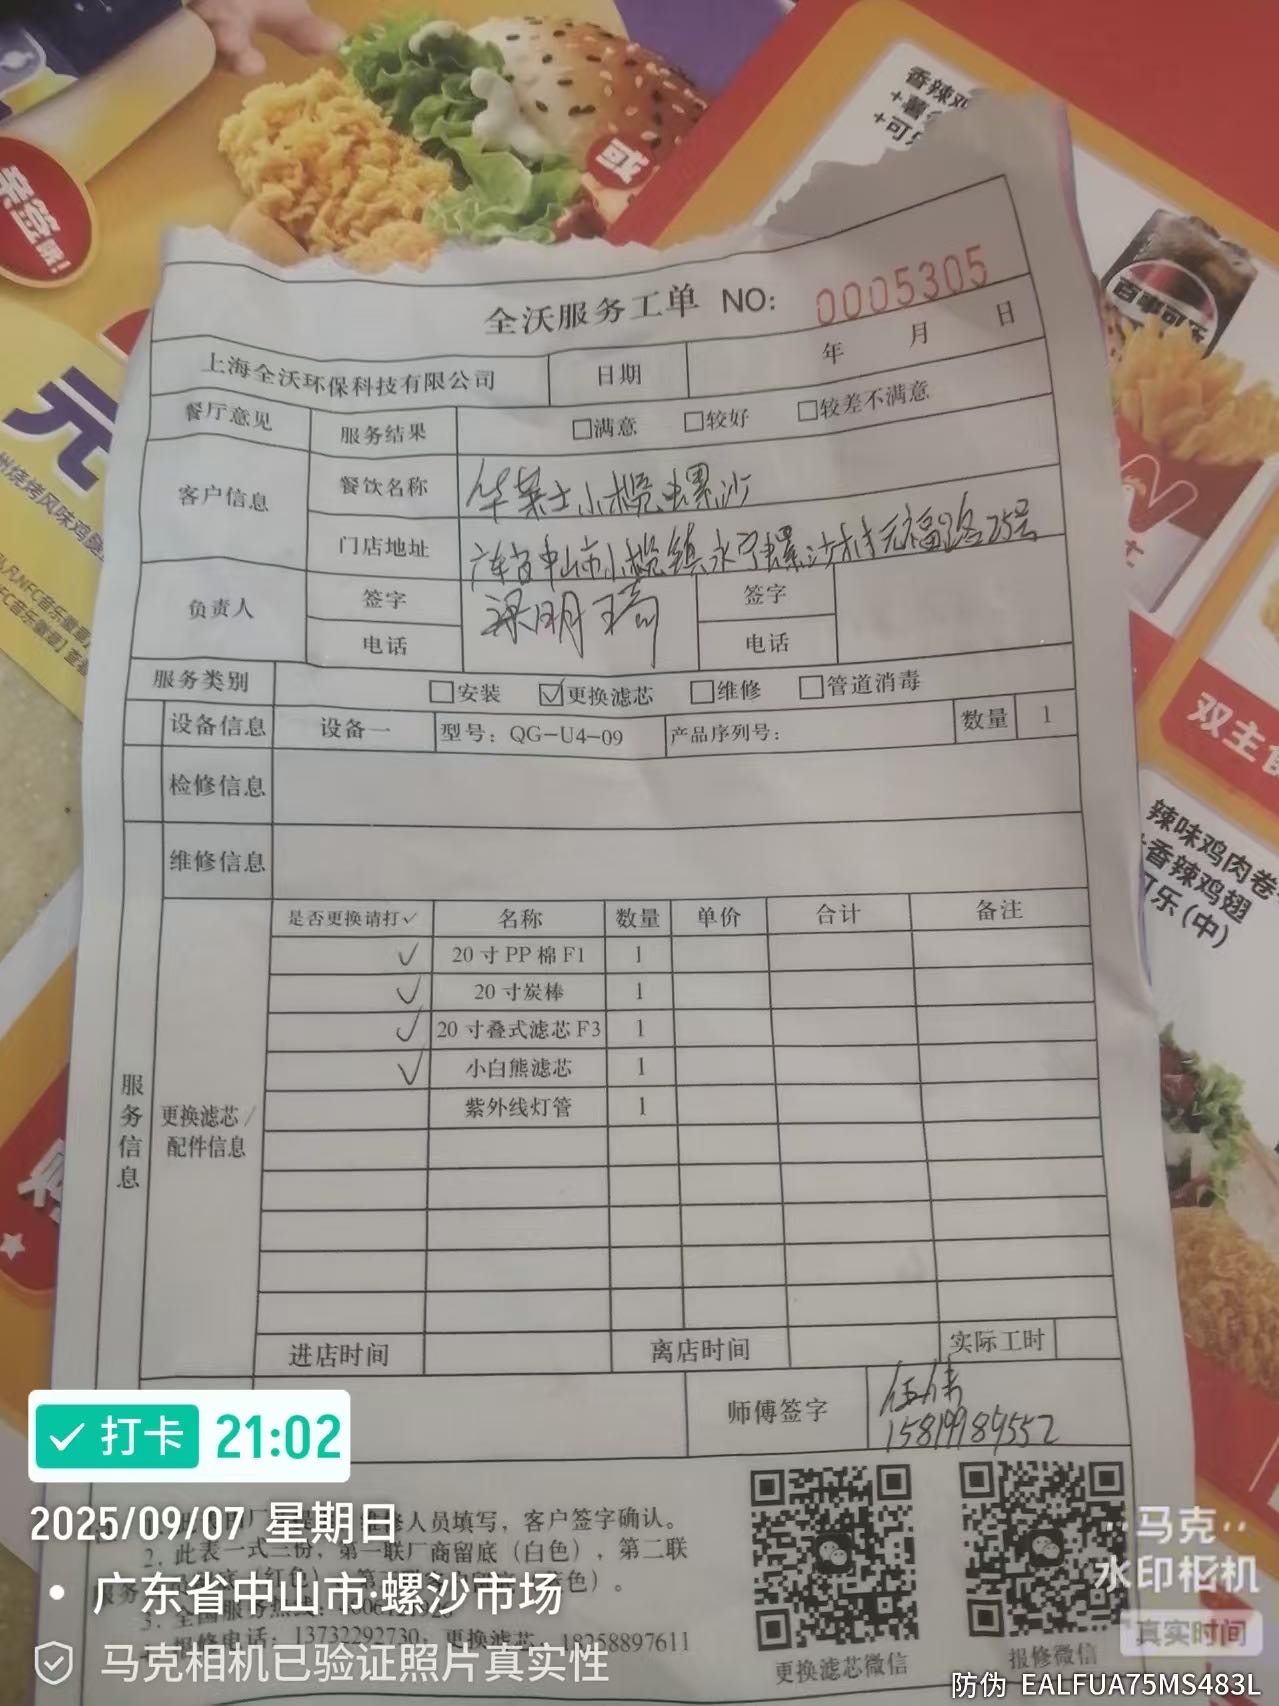 或
香辣鸡
+薯
+可
百事可乐
元
全沃服务工单 NO: 0005305
上海全沃环保科技有限公司 日期 年 月 日
餐厅意见 服务结果 □满意 □较好 □较差不满意
客户信息 餐饮名称 华莱士小榄螺沙
门店地址 广东省中山市小榄镇永宁螺沙村元福路25号
负责人 签字 梁明 签字
电话 电话
服务类别 □安装 ☑更换滤芯 □维修 □管道消毒
设备信息 设备一 型号：QG-U4-09 产品序列号： 数量 1
检修信息
维修信息
服务信息
更换滤芯/
配件信息
是否更换请打✓ 名称 数量 单价 合计 备注
✓ 20寸PP棉F1 1
✓ 20寸炭棒 1
✓ 20寸叠式滤芯F3 1
✓ 小白熊滤芯 1
紫外线灯管 1
进店时间 离店时间 实际工时
师傅签字 伍伟
15819984552
人员填写，客户签字确认。
2. 此表一式三份，第一联厂商留底（白色），第二联
3. 全国服务热线：
报修电话：13732292730，更换滤芯：18258897611
更换滤芯微信 报修微信
双主
辣味鸡肉卷
香辣鸡翅
可乐(中)
打卡 21:02
2025/09/07 星期日
广东省中山市·螺沙市场
马克相机已验证照片真实性
马克
水印相机
真实时间
防伪 EALFUA75MS483L